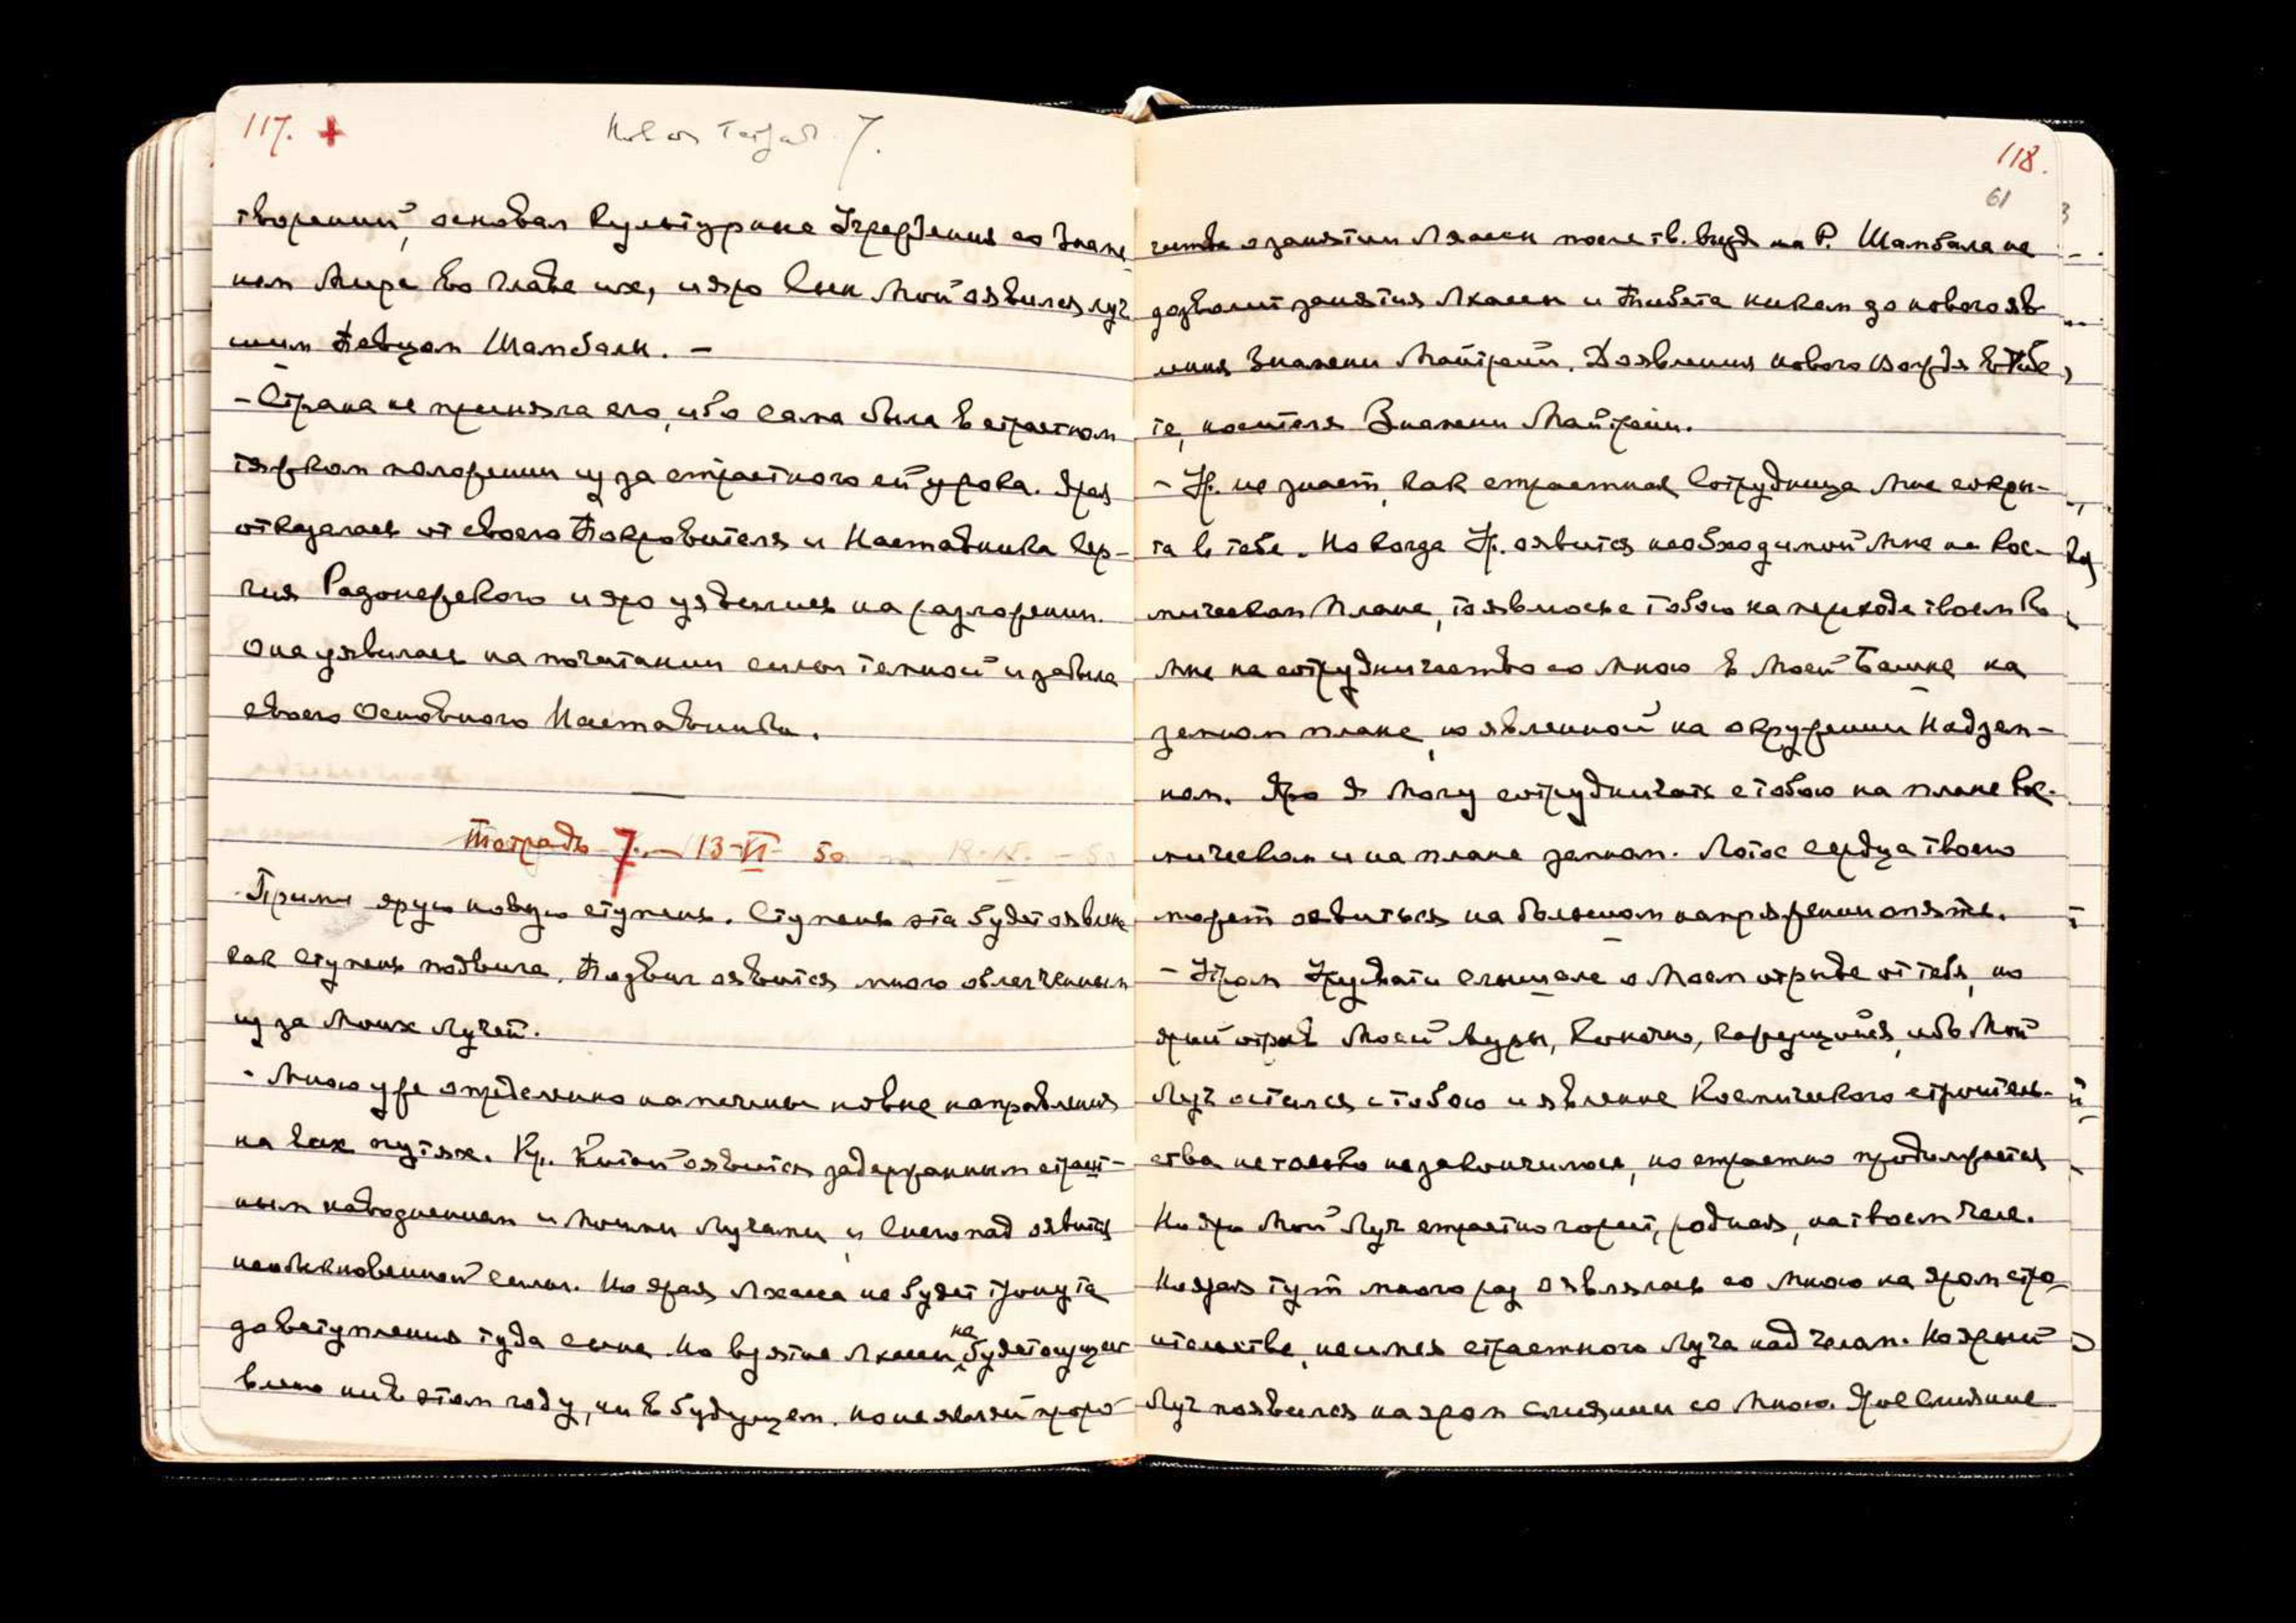 117. +
Новая Тетрадь 7.
творений, основал Культурные Учреждения со Знаме-
нем Мира во главе их, и яро Сын Мой оявился луч
шим Певцом Шамбалы. –
– Страна не приняла его, ибо сама была в страстном
тяжком положении из за страстного ей урока. Ярая
отказалась от своего Покровителя и Наставника Сер-
гия Радонежского и яро уявилась на разложении.
Она уявилась на почитании силы темной и забыла
своего Основного Наставника.
Тетрадь 7. – 13-VI- 50
Прими ярую новую ступень. Ступень эта будет оявлена
как ступень подвига. Подвиг оявится много облегченным
из за Моих Лучей.
- Мною уже определенно намечены новые направления
на всех путях. Кр. Китай оявится задержанным страст-
ным наводнением и Моими Лучами, и Снегопад оявится
необыкновенной силы. Но ярая Лхаса не будет тронута
до вступления туда сына. Но взятие Лхасы не будет осущест
влено ни в этом году, ни в будущем. Но не являй проро
118.
61
чества о занятии Лхасы после тв. вида на Р. Шамбала не
дозволит занятия Лхасы и Тибета никем до нового яв
ления Знамени Майтрейи. До явления нового Вождя в Тибе
те, носителя Знамени Майтрейи.
– Ур. не знает, как страстная Сотрудница Мне сокры-
та в тебе. Но когда Ур. оявится необходимой Мне на Кос-
мическом Плане, то явлюсь с тобою на переходе твоем ко
Мне на сотрудничество со Мною в Моей Башне на
земном плане, но явленной на окружении Надзем-
ном. Яро Я Могу сотрудничать с тобою на плане Кос-
мическом и на плане земном. Лотос сердца твоего
может оявиться на большом напряжении опять.
– Утром Урусвати слышала о Моем отрыве от тебя, но
ярый отрыв Моей Ауры, Конечно, кажущийся, ибо Мой
Луч остался с тобою и явление Космического строитель-
ства не только не закончилось, но страстно продолжается
Но яро Мой Луч страстно горит, родная, на твоем челе.
Но ярая тут много раз оявлялась со Мною на яром стро
ительстве, не имея страстного Луча над челом. Но ярый
Луч появился на яром слиянии со Мною. Ярое Слияние